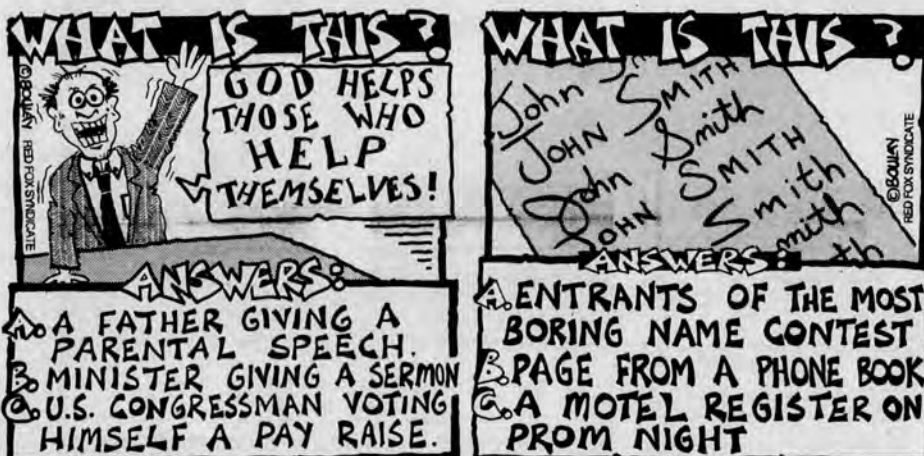 WHAT IS THIS?
©BOWLAN RED FOX SYNDICATE
GOD HELPS
THOSE WHO
HELP
THEMSELVES!
ANSWERS:
A. A FATHER GIVING A
PARENTAL SPEECH.
B. MINISTER GIVING A SERMON
C. U.S. CONGRESSMAN VOTING
HIMSELF A PAY RAISE.
WHAT IS THIS?
John
JOHN SMITH
John Smith
JOHN SMITH
Smith
mith
th
©BOWLAN
RED FOX SYNDICATE
ANSWERS:
A. ENTRANTS OF THE MOST
BORING NAME CONTEST
B. PAGE FROM A PHONE BOOK
C. A MOTEL REGISTER ON
PROM NIGHT